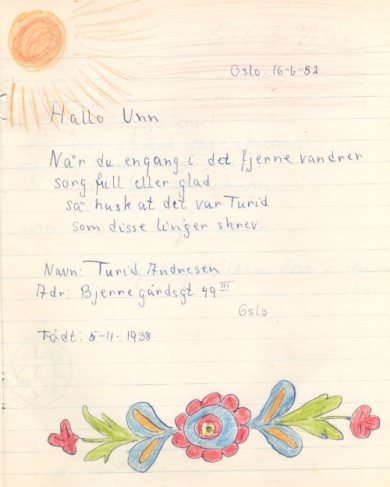 Oslo. 16-6-52.
Hallo Unn
Når du engang i det fjerne vandrer
sorg full eller glad
så husk at det var Turid
som disse linjer skrev.
Navn: Turid Andresen
Adr: Bjerregårdsgt 49 III
Oslo
Født: 5-11-1938.